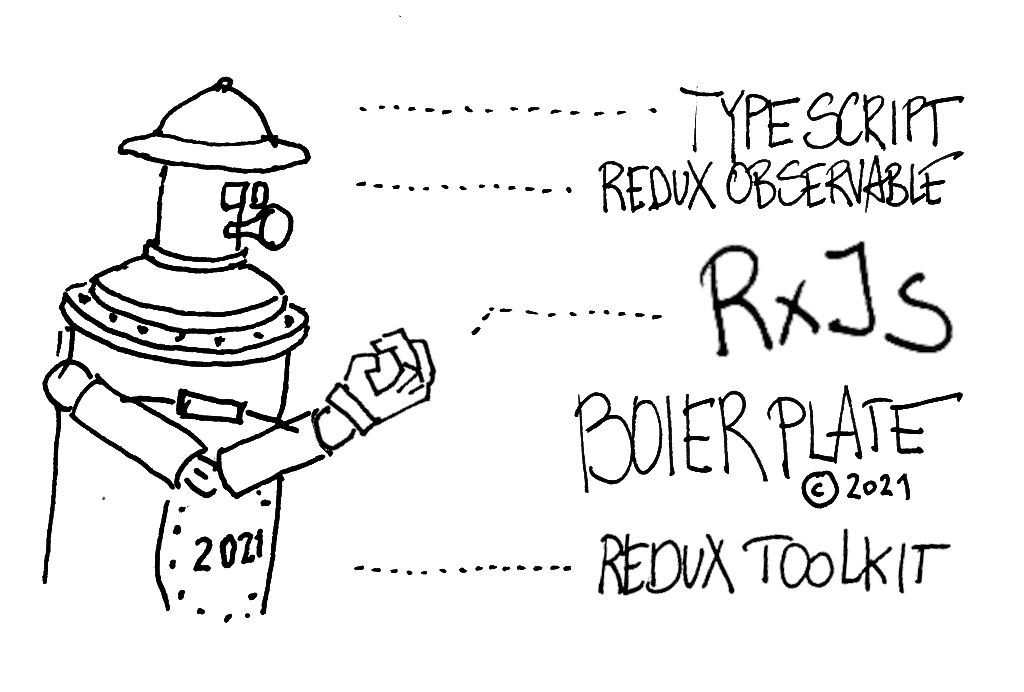 TYPESCRIPT
REDUX OBSERVABLE
RxJS
BOIER PLATE
© 2021
2021
REDUX TOOLKIT